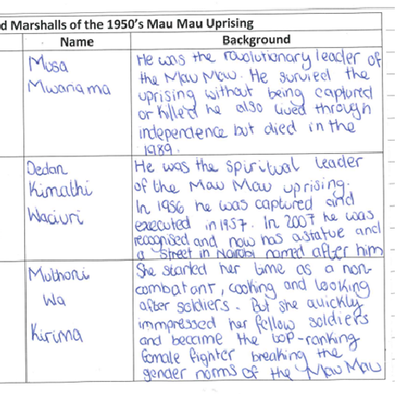 d Marshalls of the 1950's Mau Mau Uprising
Name
Background
Musa
Mwariama
He was the revolutionary leader of
the Mau Mau. He survied the
uprising without being captured
or killed he also lived through
independence but died in the
1989.
Dedan
Kimathi
Waciuri
He was the spiritual leader
of the Mau Mau uprising.
In 1956 he was captured and
executed in 1957. In 2007 he was
recognised and now has a statue and
a street in Nairobi named after him
Muthoni
Wa
Kirima
She started her time as a non-
combatant, cooking and looking
after soldiers. But she quickly
immpressed her fellow soldiers
and became the top-ranking
female fighter breaking the
gender norms of the Mau Mau